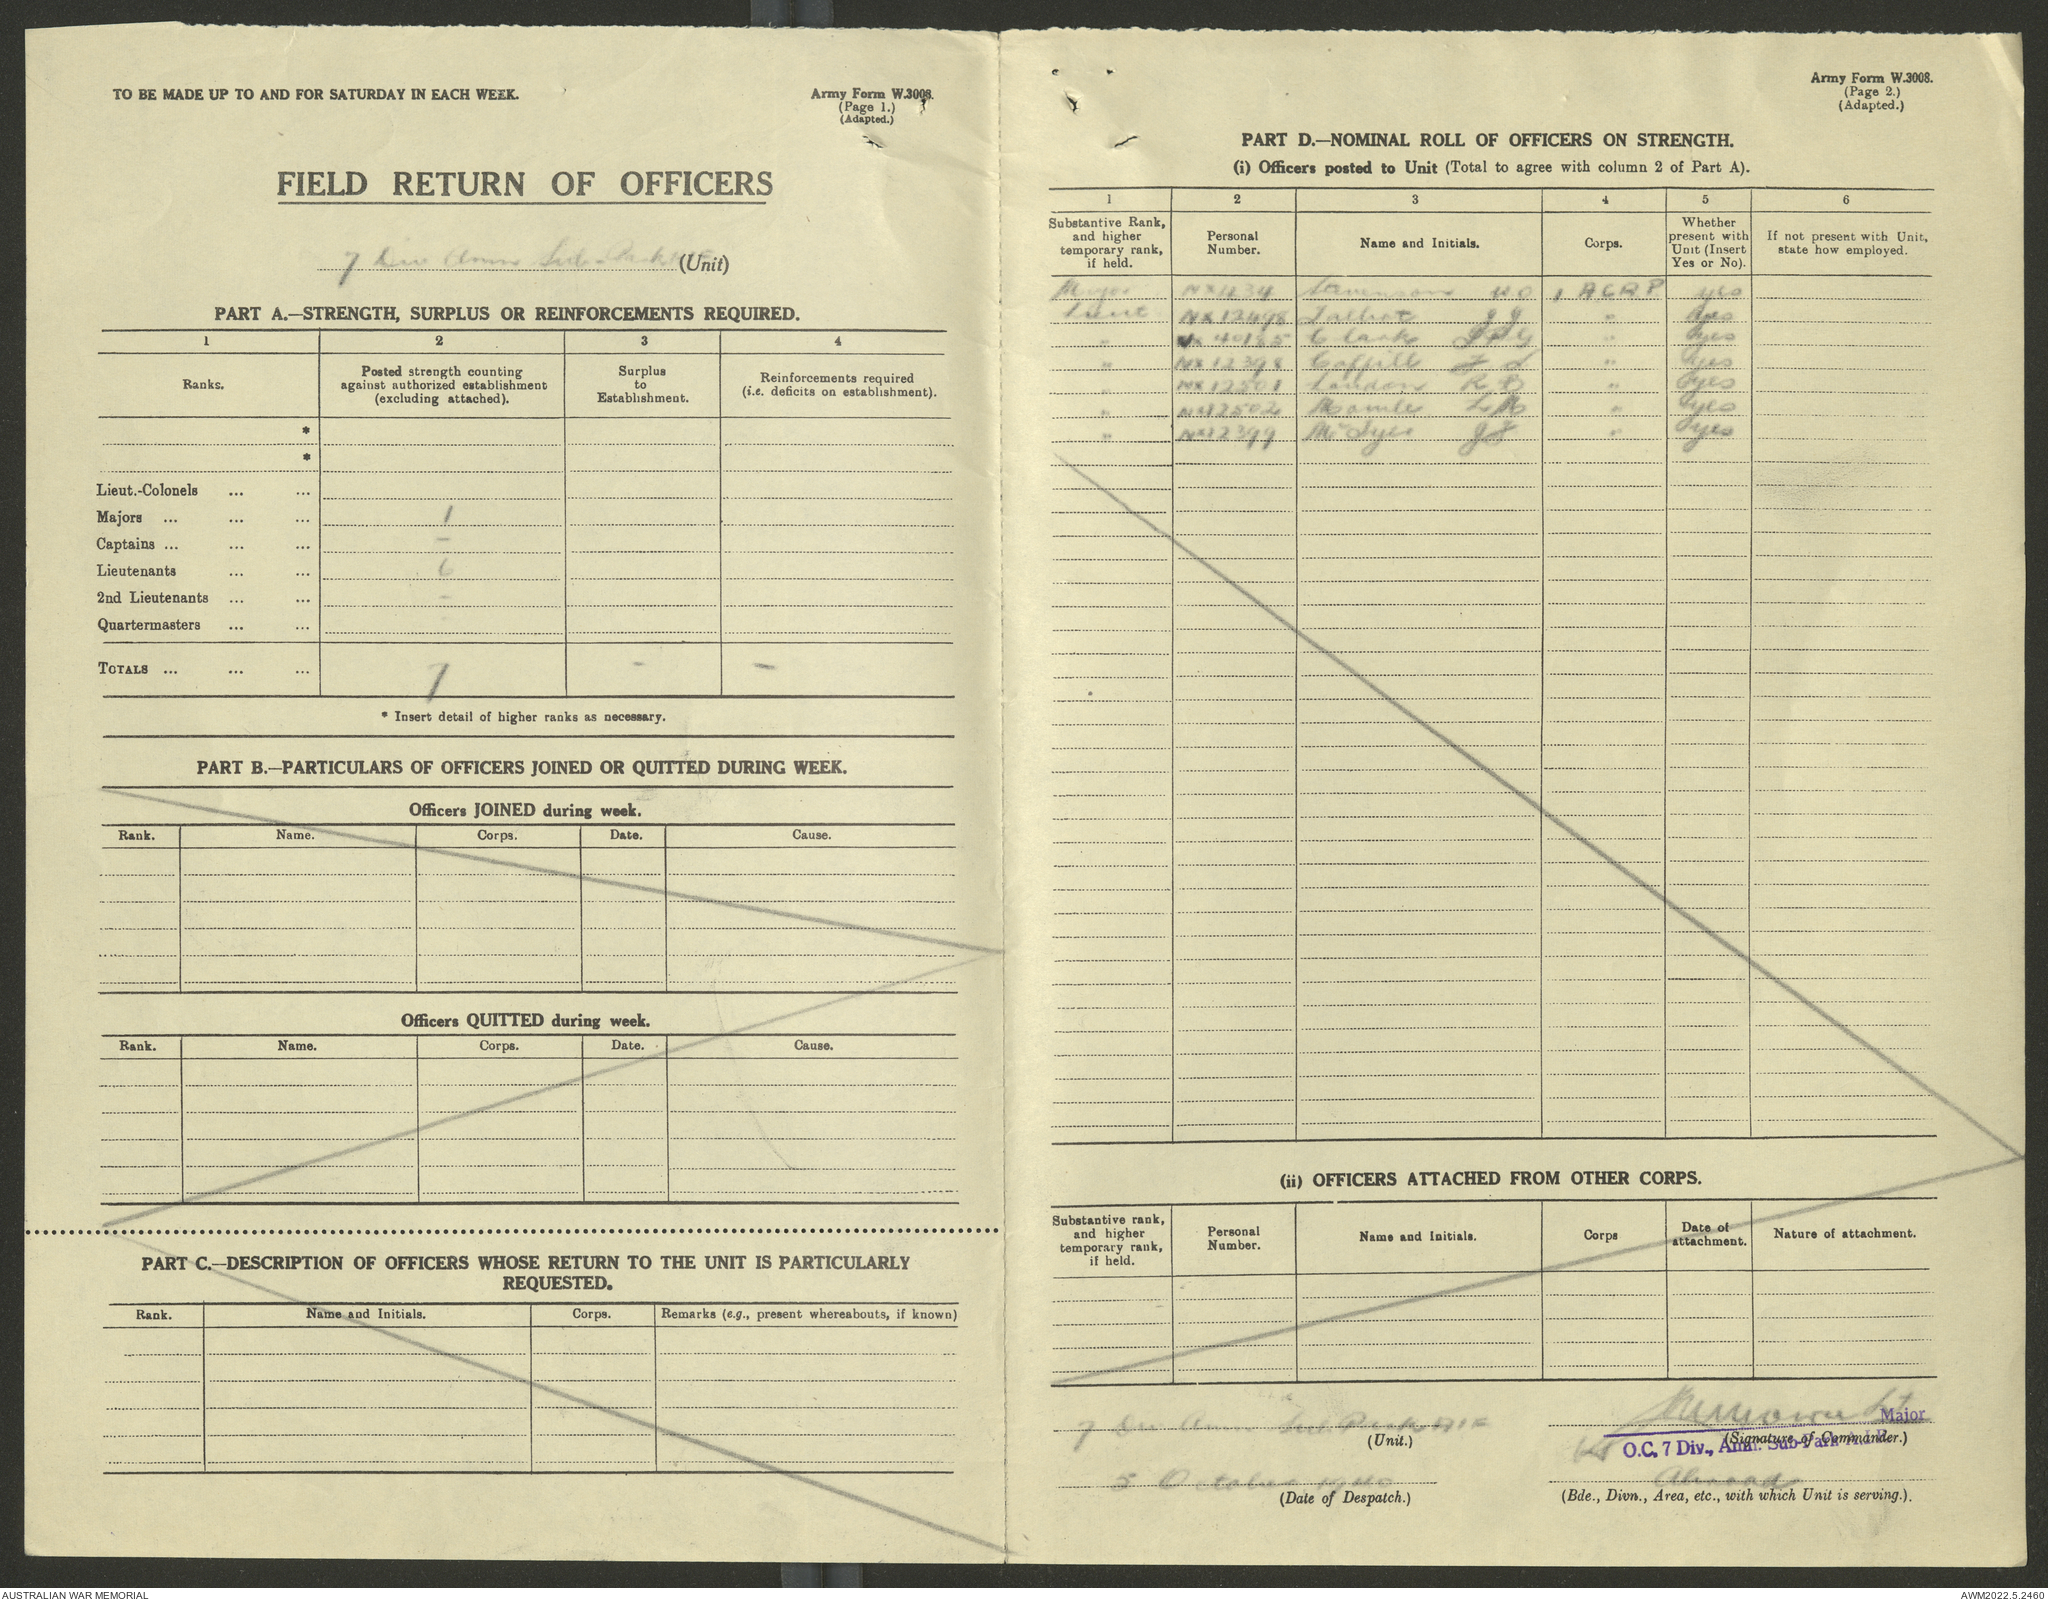 TO BE MADE UP TO AND FOR SATURDAY IN EACH WEEK.
Army Form W.3008.
(Page 1.)
(Adapted.)
FIELD RETURN OF OFFICERS
7 Div Amn Sub-Park (Unit)
PART A.—STRENGTH, SURPLUS OR REINFORCEMENTS REQUIRED.
1 2 3 4
Ranks.
Posted strength counting against authorized establishment (excluding attached).
Surplus to Establishment.
Reinforcements required (i.e. deficits on establishment).
*
*
Lieut.-Colonels ... ...
Majors ... ... ... 1
Captains ... ... ... –
Lieutenants ... ... 6
2nd Lieutenants ... ... –
Quartermasters ... ...
TOTALS ... ... ... 7 – –
* Insert detail of higher ranks as necessary.
PART B.—PARTICULARS OF OFFICERS JOINED OR QUITTED DURING WEEK.
Officers JOINED during week.
Rank. Name. Corps. Date. Cause.
Officers QUITTED during week.
Rank. Name. Corps. Date. Cause.
PART C.—DESCRIPTION OF OFFICERS WHOSE RETURN TO THE UNIT IS PARTICULARLY
REQUESTED.
Rank. Name and Initials. Corps. Remarks (e.g., present whereabouts, if known)
Army Form W.3008.
(Page 2.)
(Adapted.)
PART D.—NOMINAL ROLL OF OFFICERS ON STRENGTH.
(i) Officers posted to Unit (Total to agree with column 2 of Part A).
1 2 3 4 5 6
Substantive Rank, and higher temporary rank, if held.
Personal Number.
Name and Initials.
Corps.
Whether present with Unit (Insert Yes or No).
If not present with Unit, state how employed.
Major NX434 Stevenson yes
Lieut NX12498 Talbot JJ " yes
" 40185 Clark " yes
" NX12398 " yes
" NX12501 Loudon RB " yes
" NX12502 " yes
" NX12399 " yes
(ii) OFFICERS ATTACHED FROM OTHER CORPS.
Substantive rank, and higher temporary rank, if held.
Personal Number.
Name and Initials.
Corps
Date of attachment.
Nature of attachment.
7 Div Amn Sub Park AIF
(Unit.)
Major
(Signature of Commander.)
O.C. 7 Div., Amn. Sub-Park A.I.F.
5 October 1940
(Date of Despatch.)
Abroad
(Bde., Divn., Area, etc., with which Unit is serving.).
AUSTRALIAN WAR MEMORIAL
AWM2022.5.2460